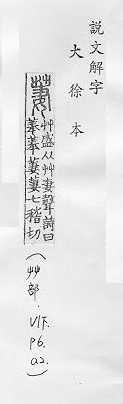 說文解字
大徐本
萋
艸盛从艸妻聲詩曰
菶菶萋萋七稽切
(艸部. V1下. P6. a2.)